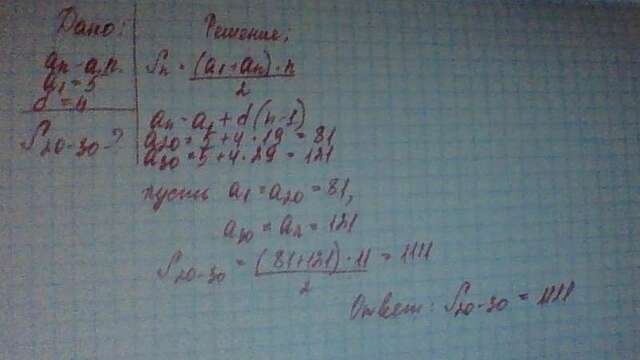 Дано:
an - а.п.
a1 = 5
d = 4
S20-30 - ?
Решение:
Sn = (a1+an)·n
2
an = a1 + d(n-1)
a20 = 5 + 4 · 19 = 81
a30 = 5 + 4 · 29 = 121
пусть a1 = a20 = 81,
a30 = an = 121
S20-30 = (81+121)·11 = 1111
2
Ответ: S20-30 = 1111